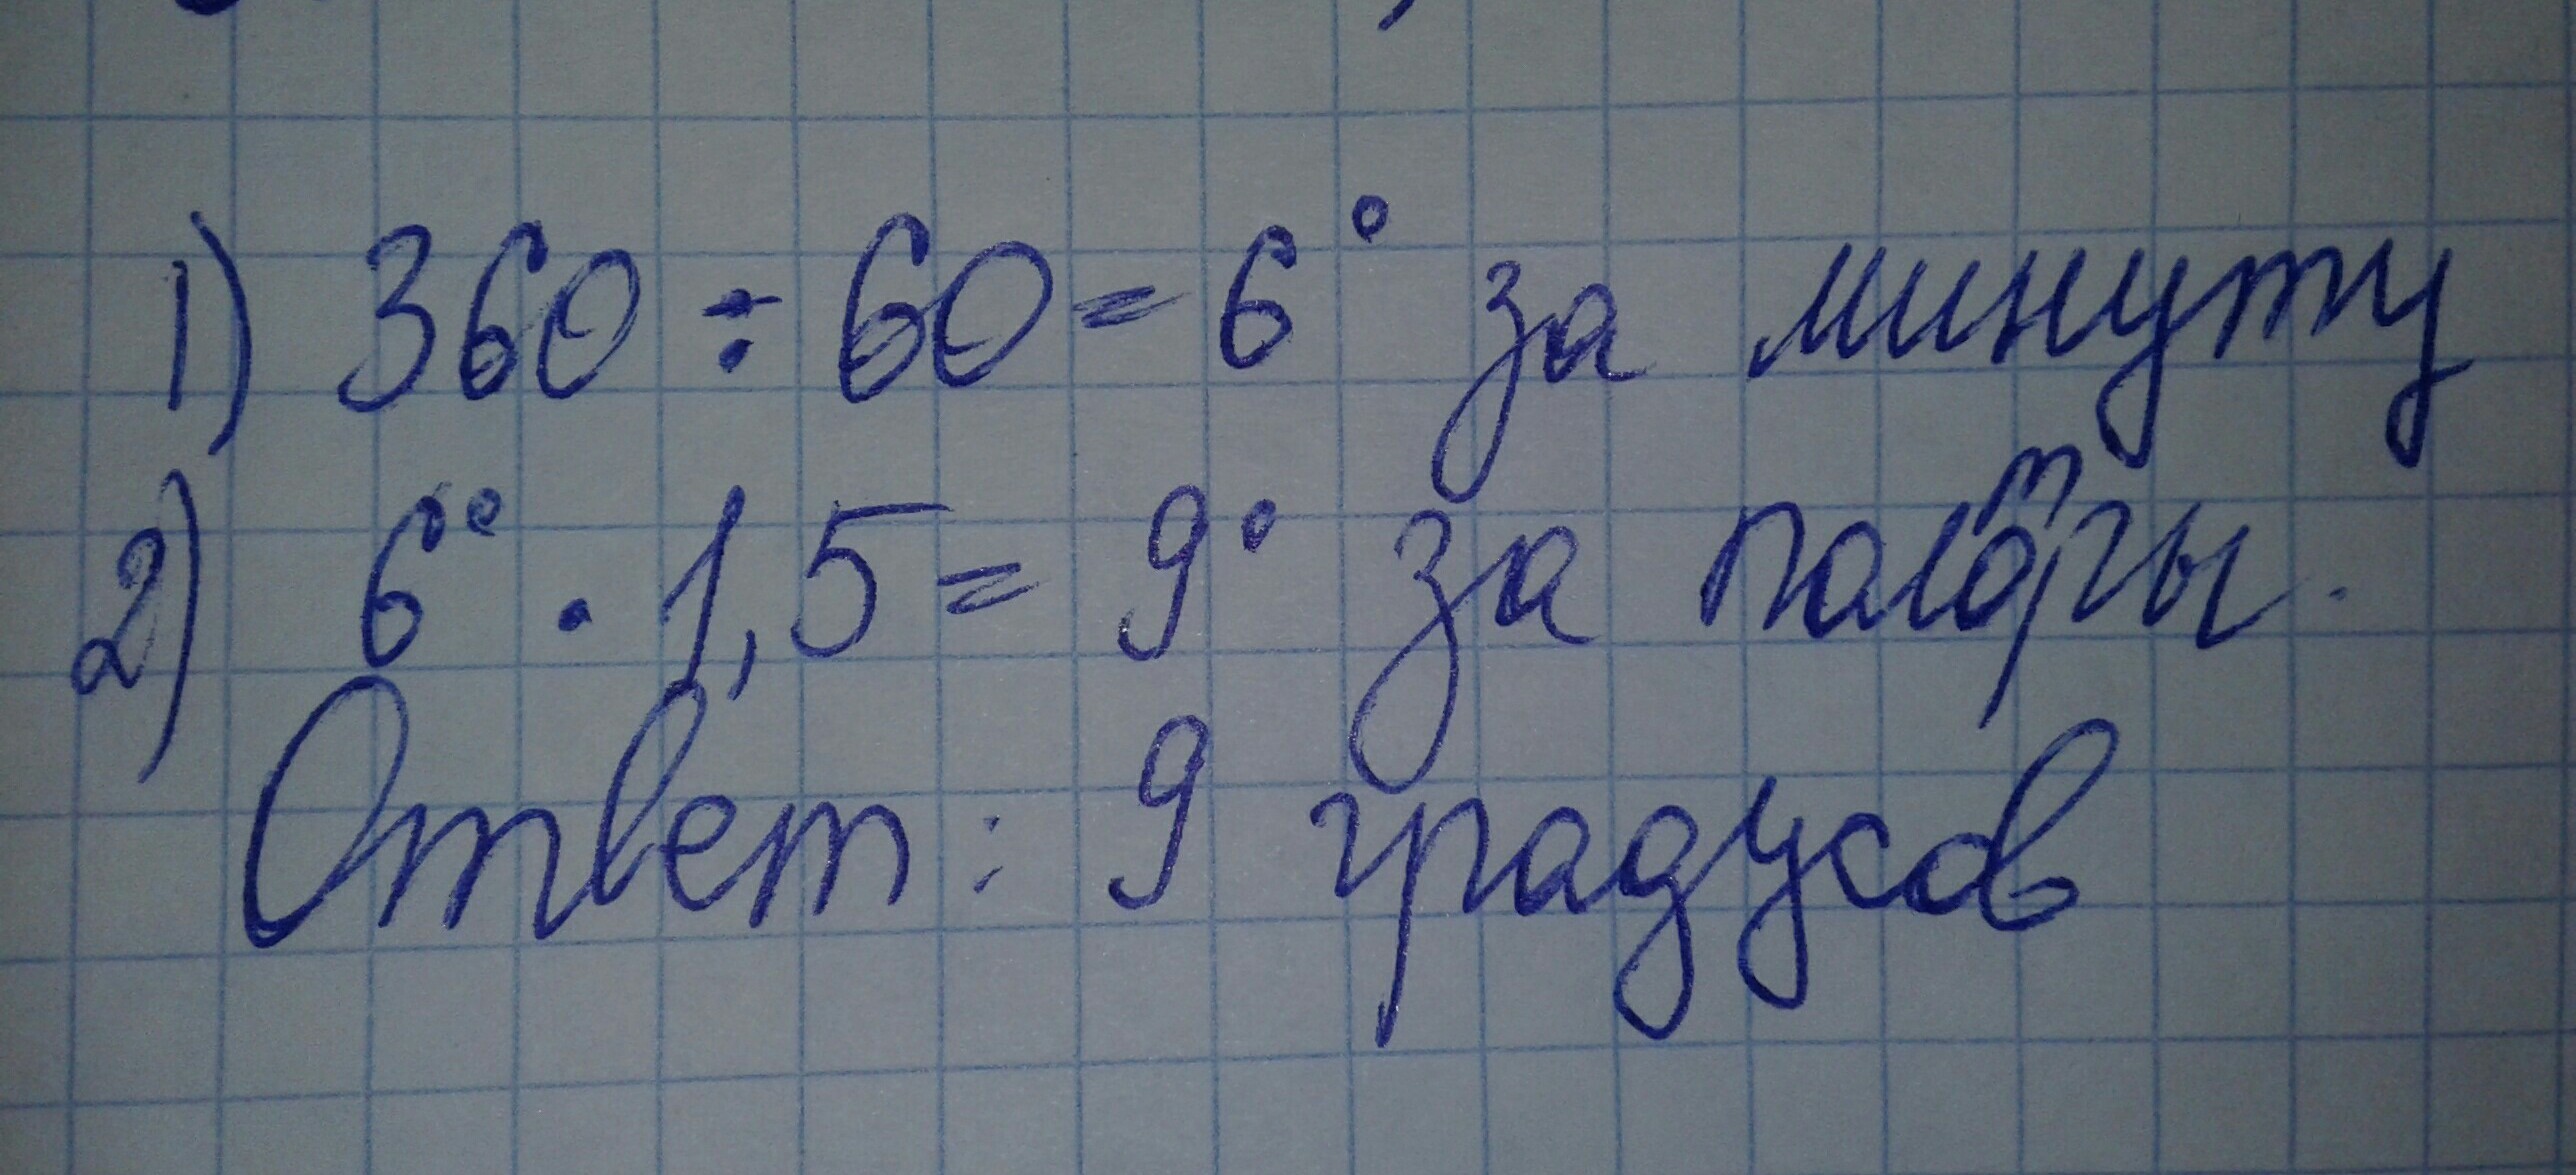 1) 360 ÷ 60 = 6° за минуту
2) 6° · 1,5 = 9° за
Ответ: 9 градусов